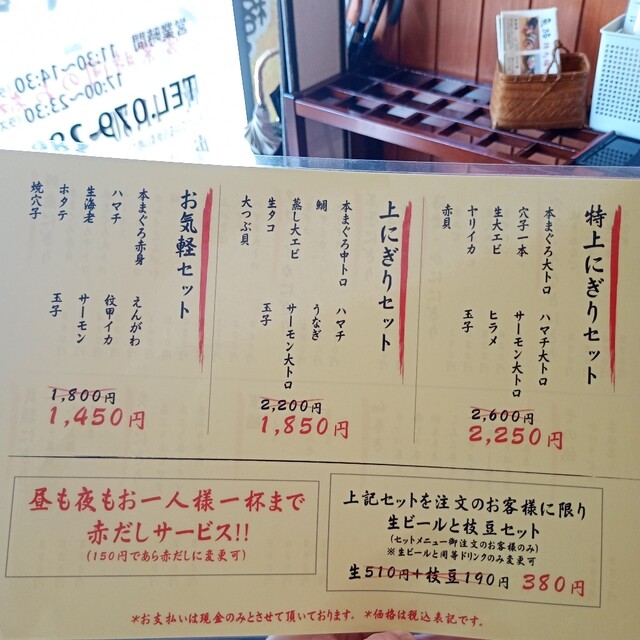 営業時間
11:30〜14:30
17:00〜23:30
TEL.079-28
特上にぎりセット
本まぐろ大トロ
ハマチ大トロ
穴子一本
サーモン大トロ
生大エビ
ヒラメ
ヤリイカ
玉子
赤貝
2,600円
2,250円
上にぎりセット
本まぐろ中トロ
ハマチ
鯛
うなぎ
蒸し大エビ
サーモン大トロ
生タコ
玉子
大つぶ貝
2,200円
1,850円
お気軽セット
本まぐろ赤身
えんがわ
ハマチ
紋甲イカ
生海老
サーモン
ホタテ
玉子
焼穴子
1,800円
1,450円
昼も夜もお一人様一杯まで
赤だしサービス!!
(150円であら赤だしに変更可)
上記セットを注文のお客様に限り
生ビールと枝豆セット
(セットメニュー御注文のお客様のみ)
※生ビールと同等ドリンクのみ変更可
生510円+枝豆190円 380円
*お支払いは現金のみとさせて頂いております。 *価格は税込表記です。